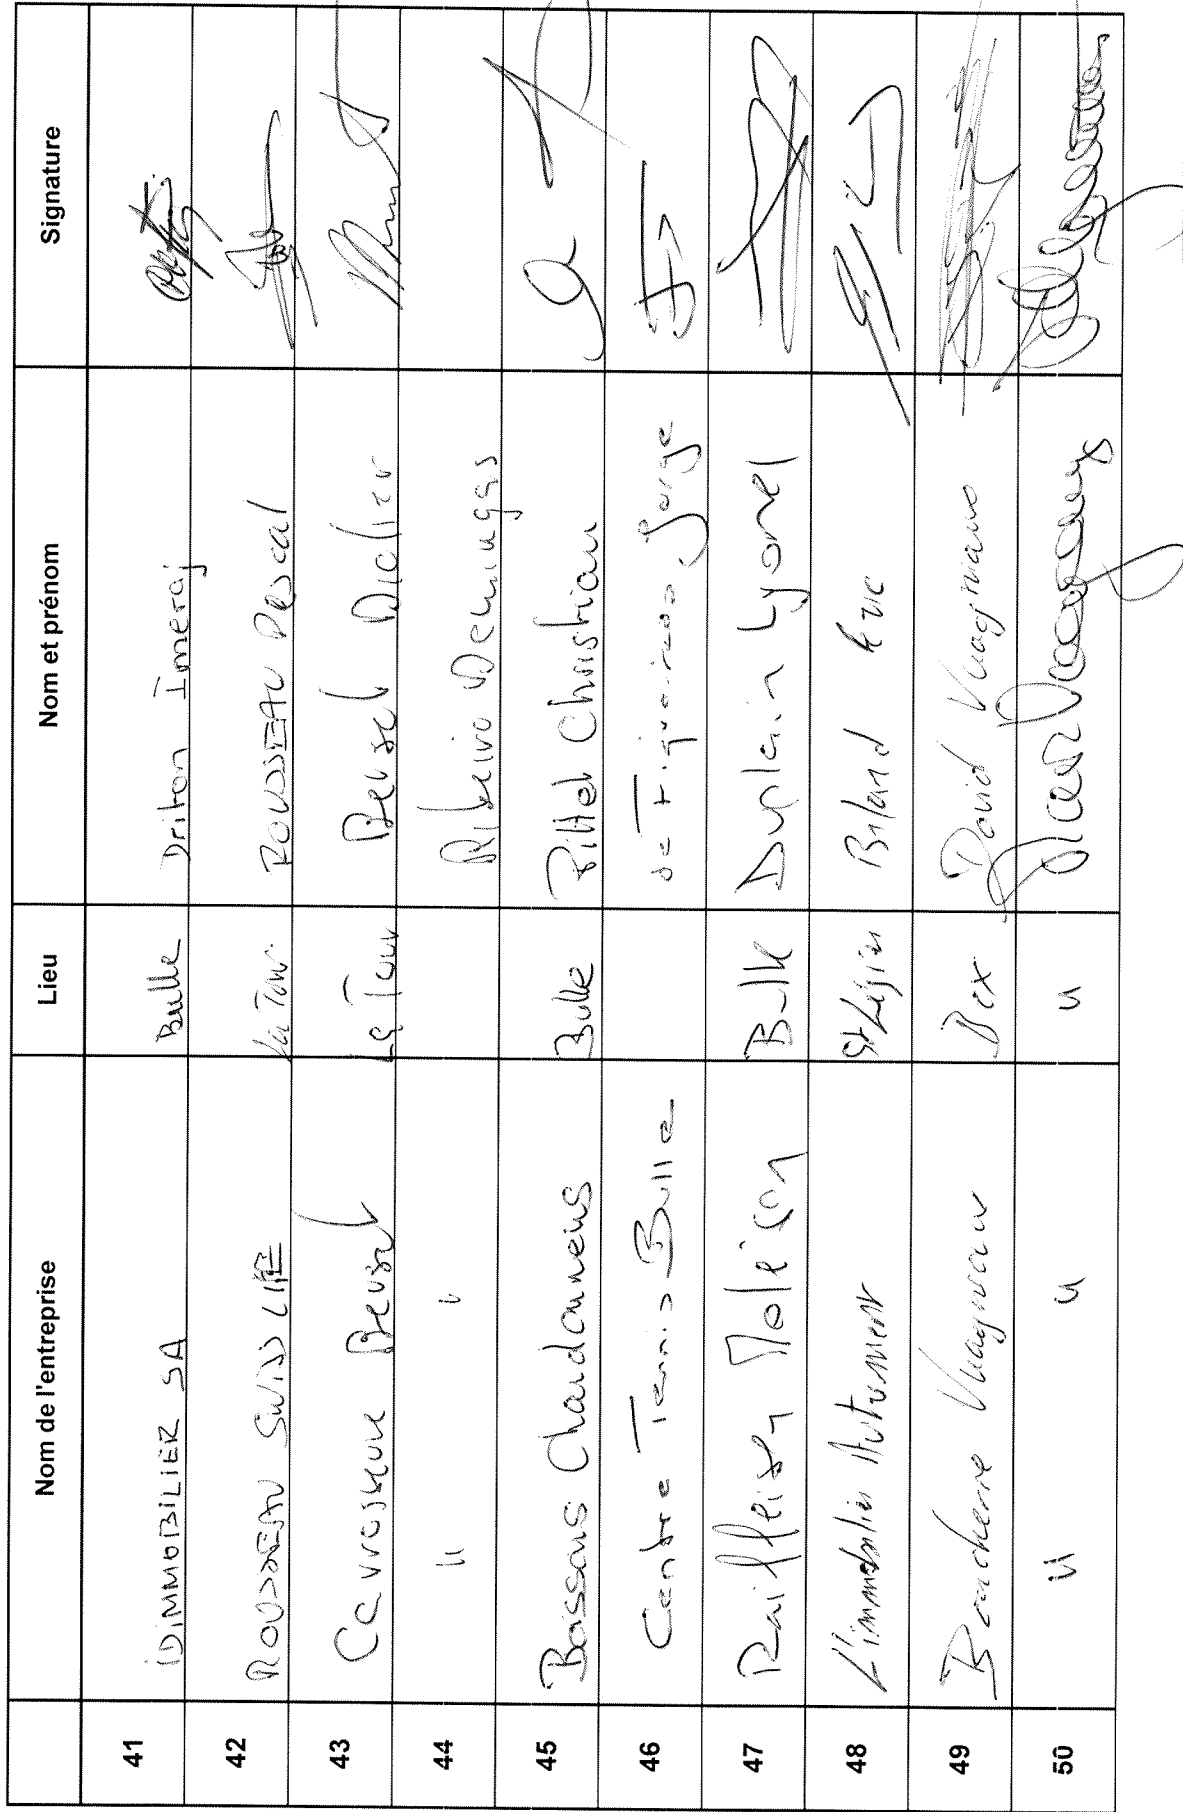 Nom de l'entreprise Lieu Nom et prénom Signature
41 iDiMMOBILIER SA Bulle Driton Imeraj
42 ROUSSEAU SWISS LIFE La Tour ROUSSEAU Pascal
43 Carrosserie La Tour Didier
44 " " Ribeiro
45 Boissons Chardonnens Bulle Pittet Christian
46 Centre Tennis Bulle de Figueiredo Jorge
47 Raiffeisen Moléson Bulle Duplain Lyonel
48 L'immobilier Autrement St Légier Eric
49 Boucherie Vuagniaux Bex David Vuagniaux
50 " " "